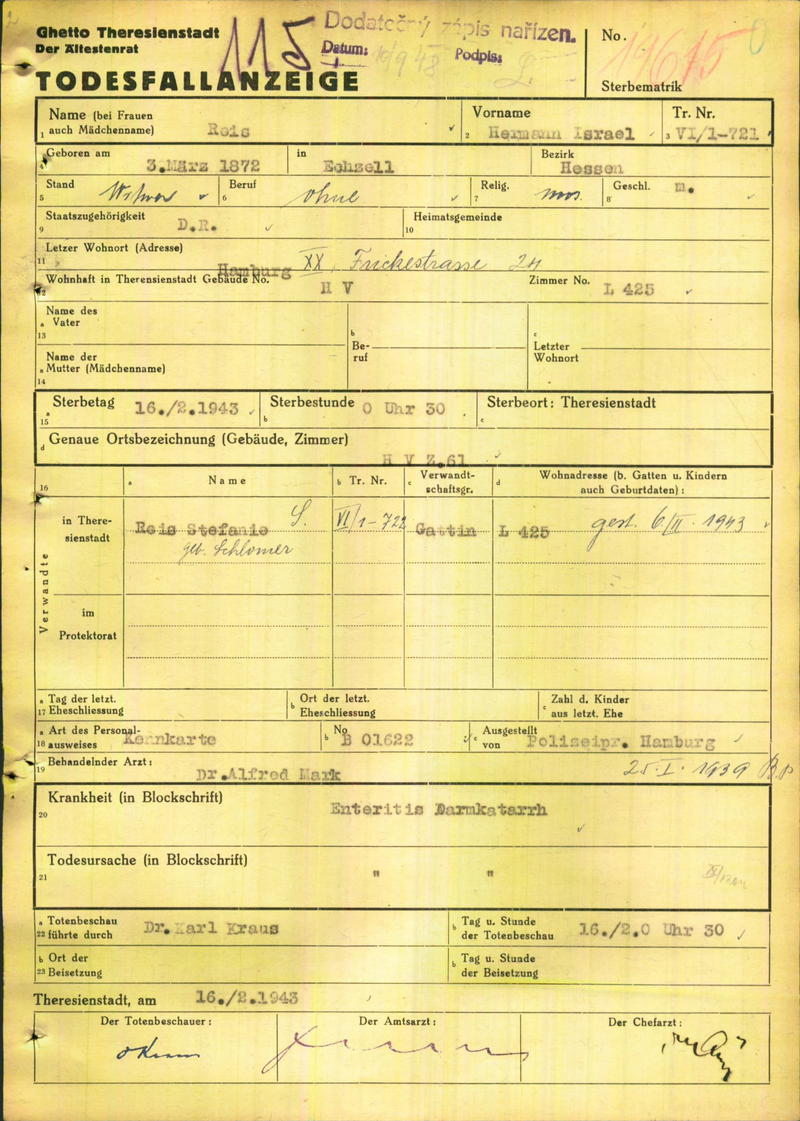 Ghetto Theresienstadt
Der Ältestenrat
115
Dodatečný zápis nařízen.
Datum: 10/9 48 Podpis:
No.
Sterbematrik
TODESFALLANZEIGE
Name (bei Frauen auch Mädchenname) Reis
1
Vorname Hermann Israel
2
Tr. Nr. VI/1-721
3
Geboren am 3.März 1872
4
in Echzell
Bezirk Hessen
Stand Witwer
5
Beruf ohne
6
Relig. mos.
7
Geschl. m.
8
Staatszugehörigkeit D.R.
9
Heimatsgemeinde
10
Letzer Wohnort (Adresse)
11
Hamburg XX, Frickestrasse 24
Wohnhaft in Theresienstadt Gebäude No. H V
12
Zimmer No. L 425
a Name des Vater
13
b Beruf
c Letzter Wohnort
a Name der Mutter (Mädchenname)
14
a Sterbetag 16./2.1943
15
b Sterbestunde 0 Uhr 30
c Sterbeort: Theresienstadt
d Genaue Ortsbezeichnung (Gebäude, Zimmer)
H V Z.61
16
a Name
b Tr. Nr.
c Verwandtschaftsgr.
d Wohnadresse (b. Gatten u. Kindern auch Geburtdaten) :
Verwandte
in Theresienstadt
Reis Stefanie S. VI/1-722 Gattin L 425 gest. 6/II. 1943
geb. Schlomer
im Protektorat
a Tag der letzt. Eheschliessung
17
b Ort der letzt. Eheschliessung
c Zahl d. Kinder aus letzt. Ehe
a Art des Personalausweises Kennkarte
18
b No B 01622
c Ausgestellt von Polizeipr. Hamburg
Behandelnder Arzt: Dr.Alfred Mark
19
25.I.1939
Krankheit (in Blockschrift) Enteritis Darmkatarrh
20
Todesursache (in Blockschrift)
21
" "
a Totenbeschau führte durch Dr.Karl Kraus
22
b Tag u. Stunde der Totenbeschau 16./2.0 Uhr 30
b Ort der Beisetzung
23
b Tag u. Stunde der Beisetzung
Theresienstadt, am 16./2.1943
Der Totenbeschauer :
Der Amtsarzt :
Der Chefarzt :